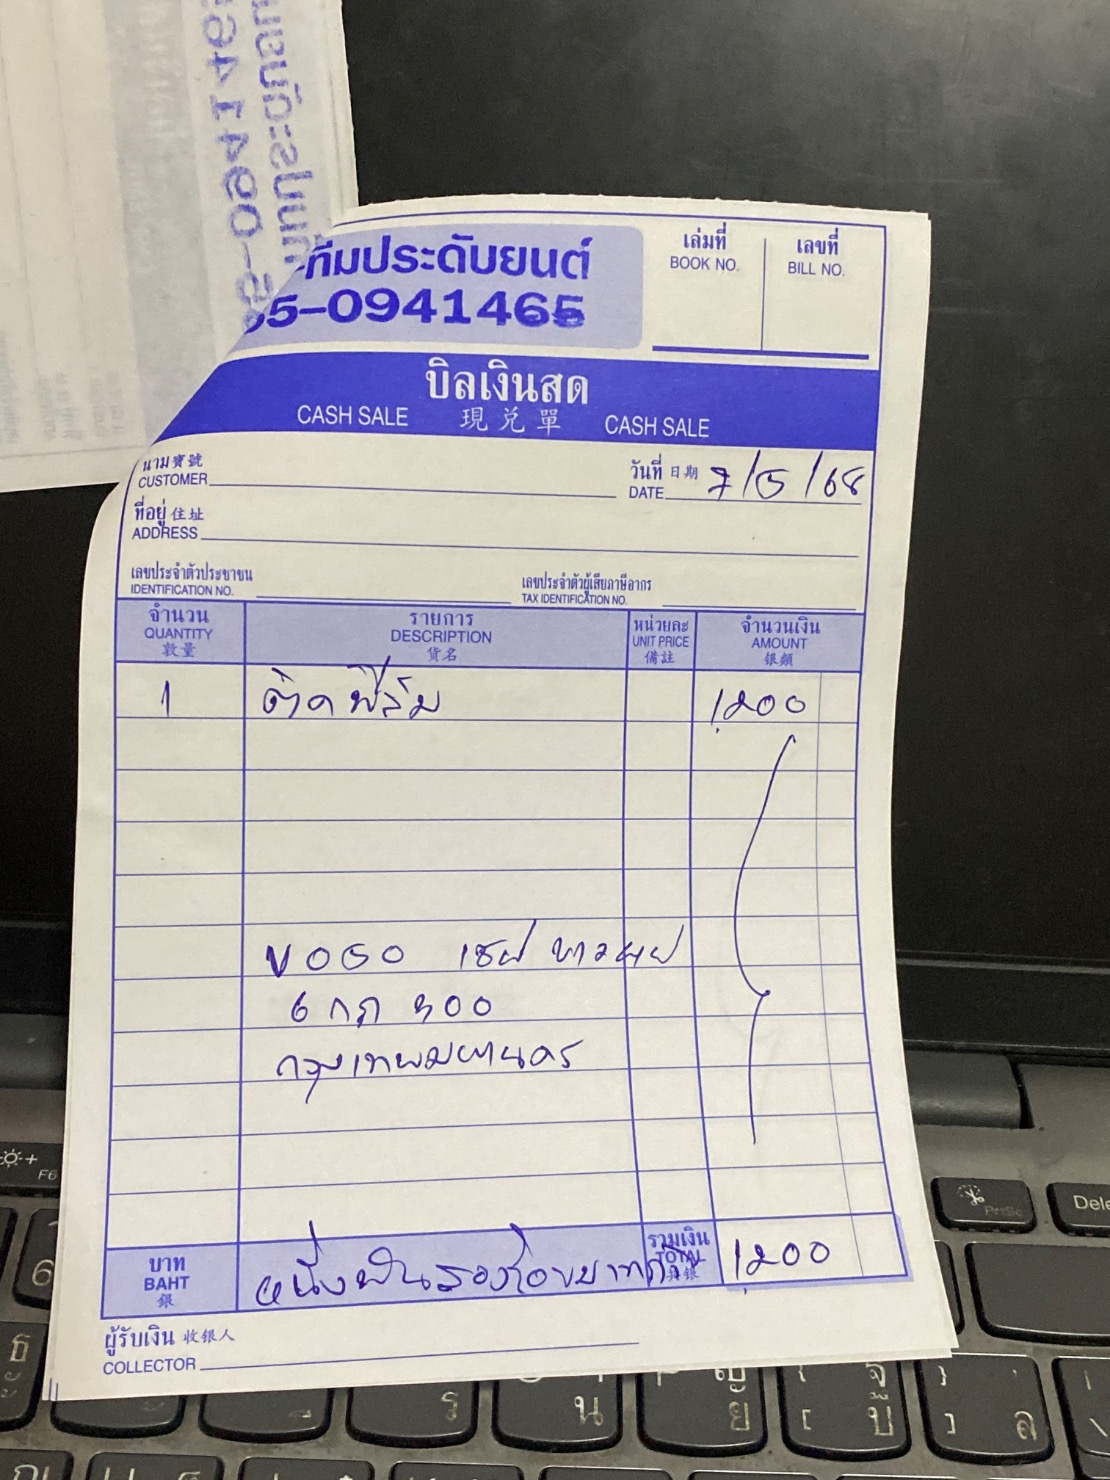 ทีมประดับยนต์
5-0941465
เล่มที่ เลขที่
BOOK NO. BILL NO.
บิลเงินสด
CASH SALE 現兌單 CASH SALE
นาม寶號 วันที่ 日期 7/5/68
CUSTOMER DATE
ที่อยู่ 住址
ADDRESS
เลขประจำตัวประชาชน เลขประจำตัวผู้เสียภาษีอากร
IDENTIFICATION NO. TAX IDENTIFICATION NO.
จำนวน รายการ หน่วยละ จำนวนเงิน
QUANTITY DESCRIPTION UNIT PRICE AMOUNT
數量 貨名 備註 銀額
1 ติดฟิล์ม 1,200
6 กฎ 300
กรุงเทพมหานคร
บาท หนึ่งพันสองร้อยบาท รวมเงิน 1,200
BAHT TOTAL
銀 共銀
ผู้รับเงิน 收銀人
COLLECTOR
F6
PrtSc
Dele
6
ธ
ร
น
ญ
ย
ฐ
บ
ล